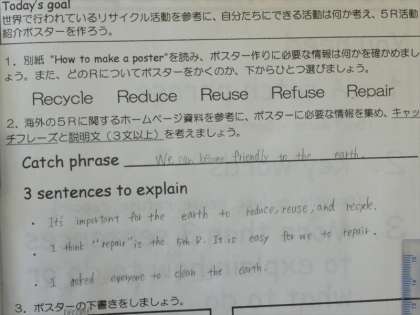 Today's goal
世界で行われているリサイクル活動を参考に、自分たちにできる活動は何か考え、5R活動
紹介ポスターを作ろう。
1．別紙 "How to make a poster"を読み、ポスター作りに必要な情報は何かを確かめまし
ょう。また、どのRについてポスターをかくのか、下からひとつ選びましょう。
Recycle Reduce Reuse Refuse Repair
2．海外の5Rに関するホームページ資料を参考に、ポスターに必要な情報を集め、キャッ
チフレーズと説明文（3文以上）を考えましょう。
Catch phrase We can become friendly to the earth.
3 sentences to explain
・ It's important for the earth to reduce, reuse, and recycle.
・ I think "repair" is the 5th R. It is easy for we to repair.
・ I asked everyone to clean the earth.
3．ポスターの下書きをしましょう。